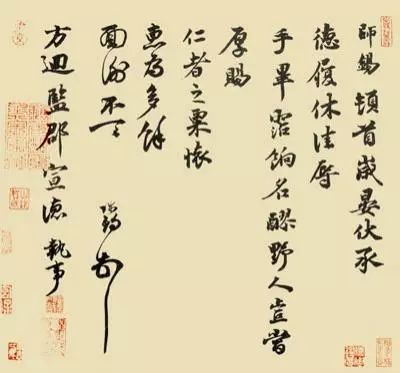 師錫頓首歲晏伏承
德履休佳辱
手畢霑餉名醪野人豈當
厚賜
仁者之粟懷
惠為多餘
面謝不一一
方迴監郡宣德執事